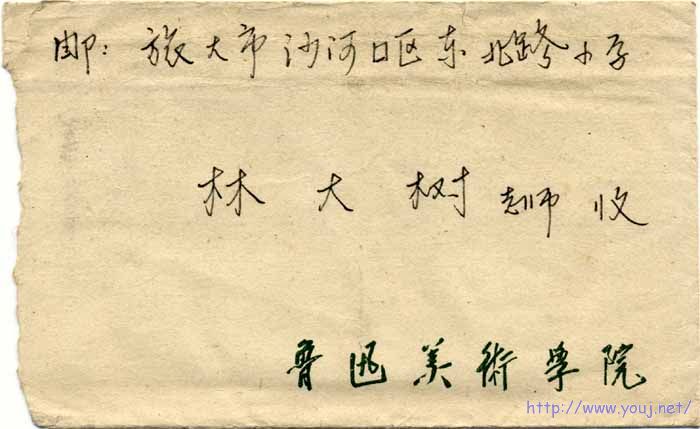 邮：旅大市沙河口区东北路小学
林大树老师收
魯迅美術學院
http://www.youj.net/